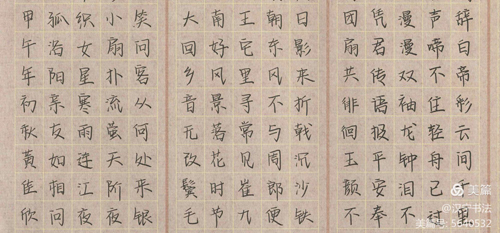 辞白帝彩云间
声啼不住轻舟已过
漫漫双袖龙钟泪不
凭君传语报平安奉
团扇共徘徊玉颜不
日影来折戟沉沙铁
朝东风不与周郎便
王宅里寻常见崔九
南好风景落花时节
大回乡音无改鬓毛
笑问客从何处来银
小扇扑流萤天阶夜
织女星寒雨连江夜
孤洛阳亲友如相问
甲午年初秋黄佳欣
美篇
美篇号: 5640532